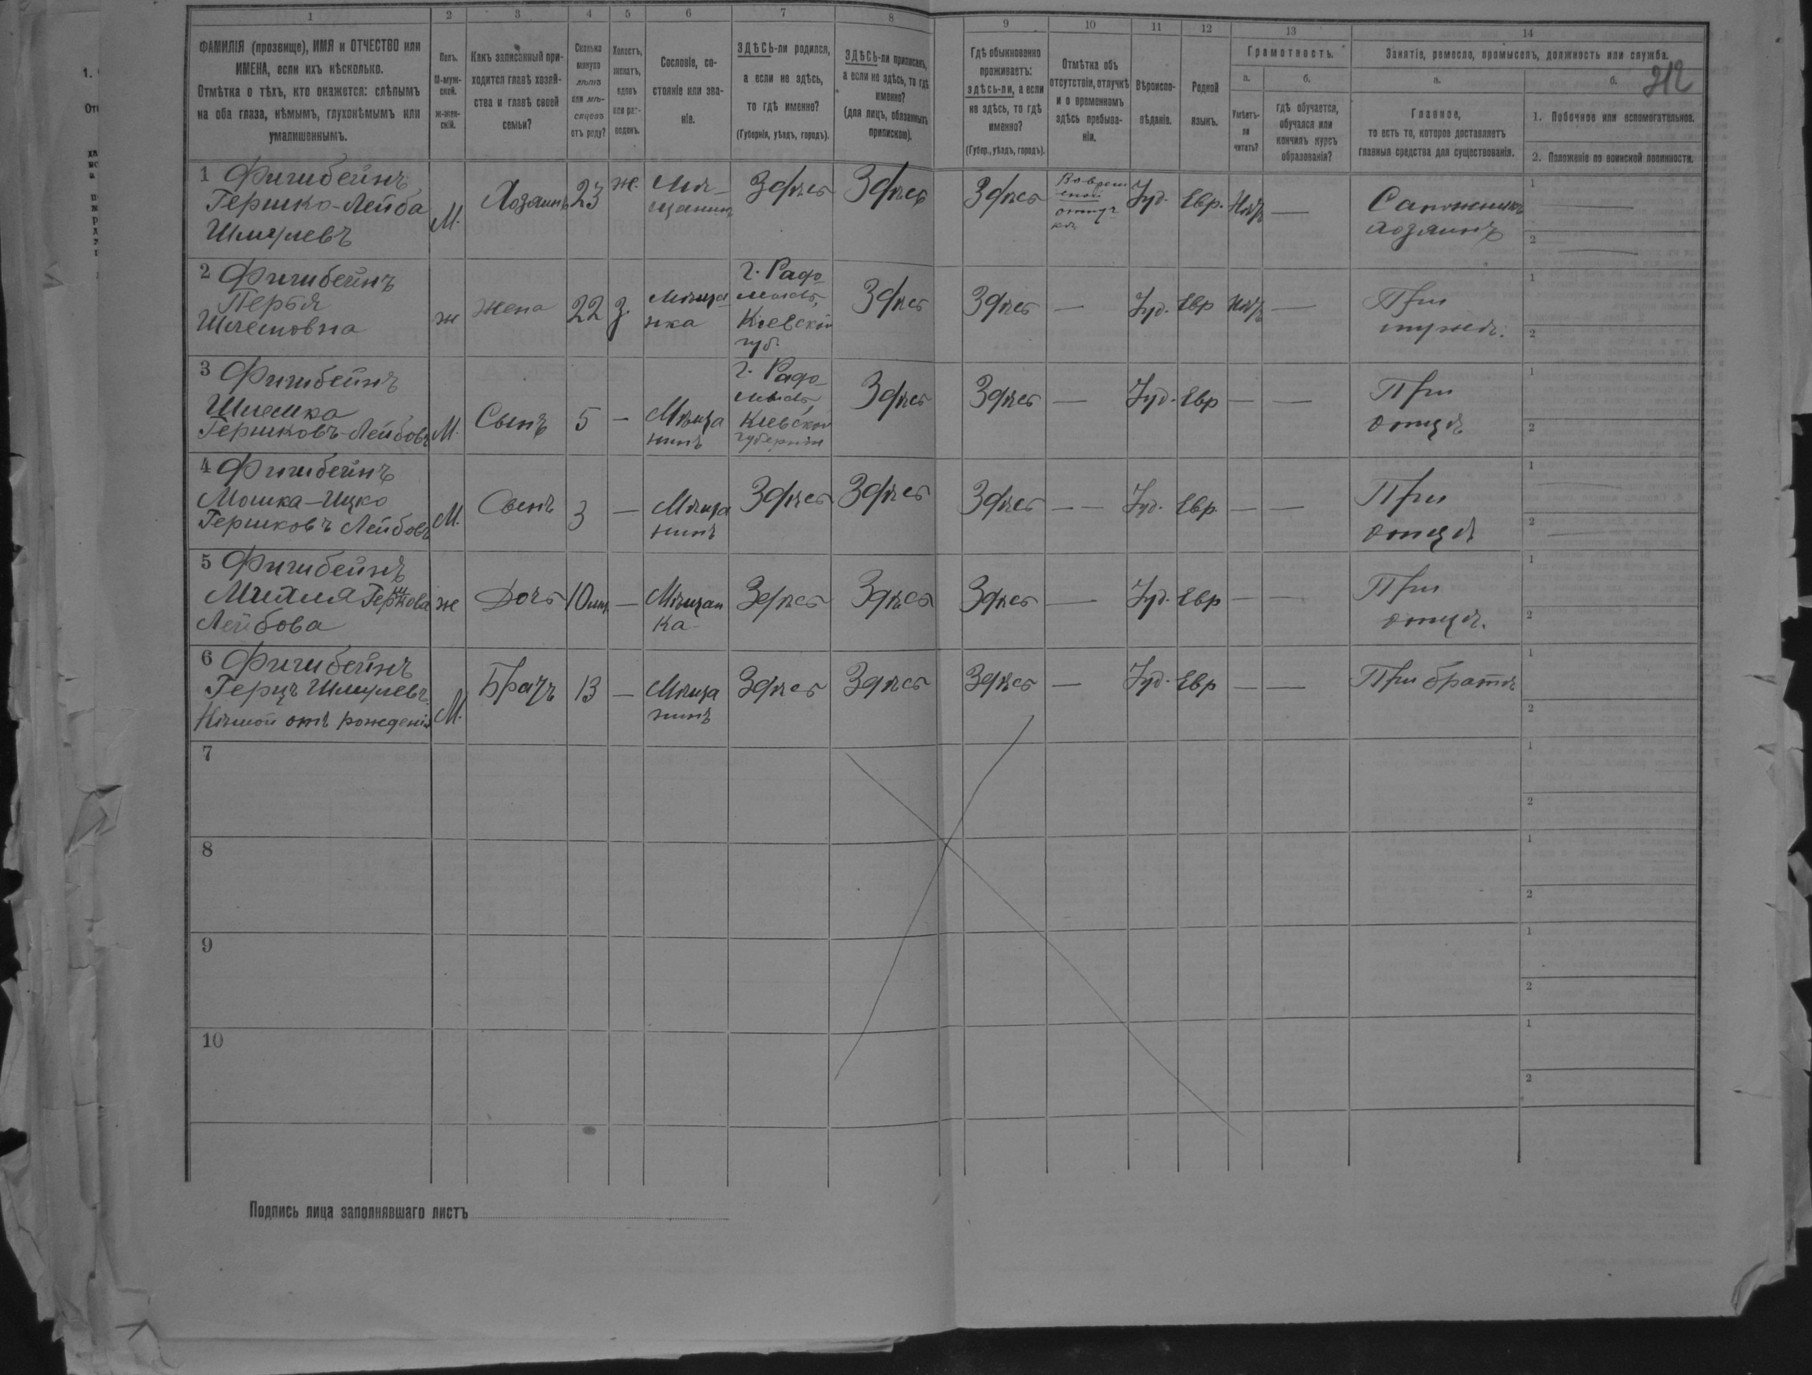 1 2 3 4 5 6 7 8 9 10 11 12 13 14
ФАМИЛІЯ (прозвище), ИМЯ и ОТЧЕСТВО или
ИМЕНА, если ихъ нѣсколько.
Отмѣтка о тѣхъ, кто окажется: слѣпымъ
на оба глаза, нѣмымъ, глухонѣмымъ или
умалишоннымъ.
Полъ.
М-муж-
ской.
Ж-жен-
скій.
Какъ записанный при-
ходится главѣ хозяй-
ства и главѣ своей
семьи?
Сколько
минуло
лѣтъ
или мѣ-
сяцевъ
отъ роду?
Холостъ,
женатъ,
вдовъ
или раз-
веденъ.
Сословіе, со-
стояніе или зва-
ніе.
ЗДѢСЬ-ли родился,
а если не здѣсь,
то гдѣ именно?
(Губернія, уѣздъ, городъ).
ЗДѢСЬ-ли приписанъ,
а если не здѣсь, то гдѣ
именно?
(для лицъ, обязанныхъ
припискою).
Гдѣ обыкновенно
проживаетъ:
здѣсь-ли, а если
не здѣсь, то гдѣ
именно?
(Губер., уѣздъ, городъ).
Отмѣтка объ
отсутствіи, отлучкѣ
и о временномъ
здѣсь пребыва-
ніи.
Вѣроиспо-
вѣданіе.
Родной
языкъ.
Грамотность.
а.
Умѣетъ-
ли
читать?
б.
гдѣ обучается,
обучался или
кончилъ курсъ
образованія?
Занятіе, ремесло, промыселъ, должность или служба.
а.
Главное,
то есть то, которое доставляетъ
главныя средства для существованія.
б.
212
1. Побочное или вспомогательное.
2. Положеніе по воинской повинности.
1 Фигибейнъ
Гершко-Лейба
Шмулевъ
М.
Хозяинъ
23
ж.
Мѣ-
щанинъ
Здѣсь
Здѣсь
Здѣсь
Іуд.
Евр.
Нѣтъ
—
Сапожникъ
хозяинъ
1
2
2 Фигибейнъ
Перля
Шлемовна
ж
жена
22
з.
Мѣща
нка
г. Радо
мысль,
Кіевской
губ.
Здѣсь
Здѣсь
—
Іуд.
Евр
Нѣтъ
—
При
мужѣ.
1
2
3 Фигибейнъ
Шлемка
Гершковъ-Лейбовъ
М.
Сынъ
5
—
Мѣща
нинъ
г. Радо
мысль
Кіевской
губерніи
Здѣсь
Здѣсь
—
Іуд.
Евр
—
—
При
отцѣ
1
2
4 Фигибейнъ
Мошка-Ицко
Гершковъ Лейбовъ
М.
Сынъ
3
—
Мѣща
нинъ
Здѣсь
Здѣсь
Здѣсь
—
Іуд.
Евр
—
—
При
отцѣ
1
2
5 Фигибейнъ
Лейбова
ж
Дочь
—
Мѣщан
ка
Здѣсь
Здѣсь
Здѣсь
—
Іуд.
Евр
—
—
При
отцѣ.
1
2
6 Фигибейнъ
Герцъ Шмулевъ
Нѣмой отъ рожденія
М.
Братъ
13
—
Мѣща
нинъ
Здѣсь
Здѣсь
Здѣсь
—
Іуд.
Евр
—
—
При братѣ
1
2
7
1
2
8
1
2
9
1
2
10
1
2
Подпись лица заполнявшаго листъ